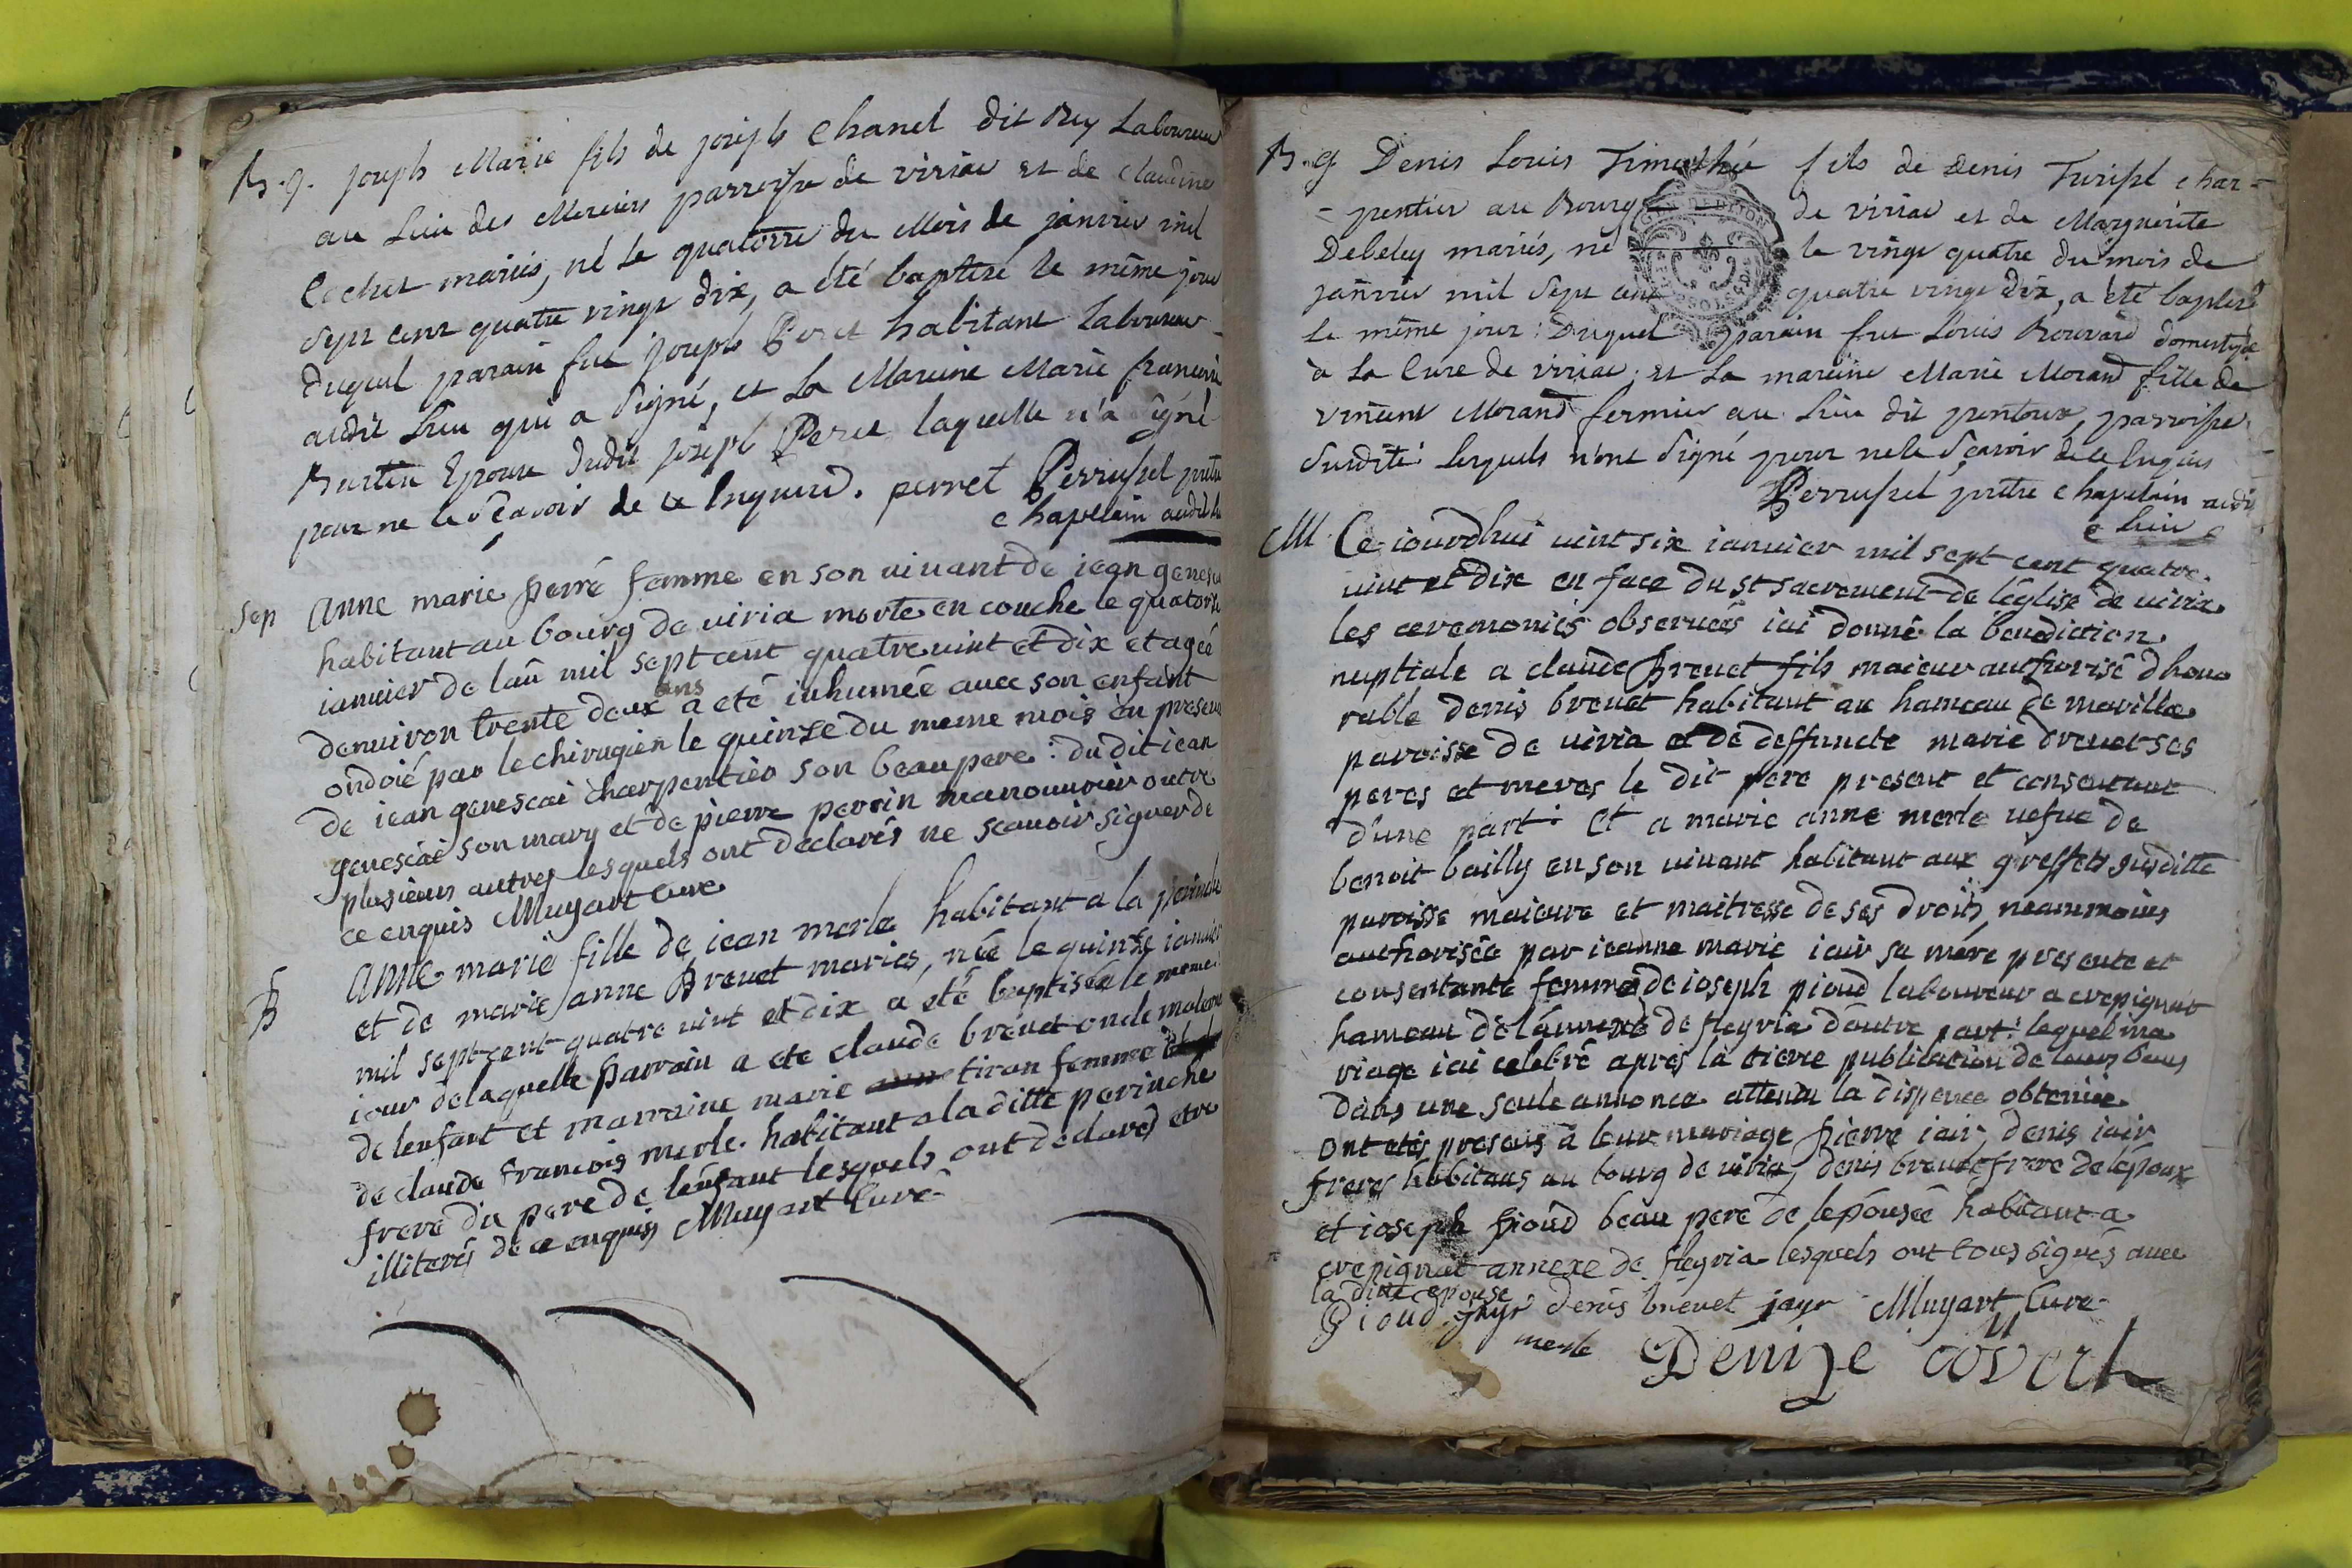 B. g. joseph Marie fils de joseph Chanel dit Rey Laboureur
au Lieu des Merciers parroisse de viriac et de Claudine
Cochet mariés, né le quatorze du Mois de janvier mil
Sept cent quatre vingt dix, a été baptisé le même jour
Duquel parain fut joseph Peret habitant Laboureur
audit Lieu qui a Signé, et La Mareine Marie francoise
Burtin Epouse dudit joseph Peret laquelle n'a Signé
pour ne le Scavoir de ce Enquerd. perret Perrussel prêtre
Chapelain audit lieu
Sep Anne marie perré femme en son vivant de iean
habitant au bourg de viria morte en couche le quatorse
ianvier de lan mil sept cent quatre vint et dix et agée
denviron trente deux ans a eté inhumée avec son enfant
ondoié par le chirugien le quinse du meme mois en presence
de iean genescai charpentier son beau pere : du dit iean
genescai son mary et de pierre perrin manouvrier outre
plusieurs autres lesquels ont declarés ne scavoir signer de
ce enquis Muyart Cure
B Anne marie fille de iean merle habitant a la perinche
et de marie anne Brevet maries, née le quinse ianvier
mil sept cent quatre vint et dix a eté baptisée le meme
iour de laquelle parrain a ete claude brevet oncle maternel
de lenfant et marraine marie tiran femme
de claude francois merle habitant a la ditte perinche
frere du pere de lenfant lesquels ont declarés etre
illiterés de ce enquis Muyart Curé
B. g Denis Louis Timothée fils de Denis Turissel char-
-pentier au Bourg de viriac et de Marguerite
Debeley mariés, né le vingt quatre du mois de
janvier mil Sept cent quatre vingt dix, a été baptisé
le même jour : Duquel parain fut Louis Rouvard domestique
à La Cure de viriac ; et La mareine Marie Morand fille de
vincent Morand fermier au Lieu dit pentoux, parroisse
Susdite : lesquels n'ont Signé pour ne le Sçavoir de ce Enquis
Perrussel prêtre Chapelain audit
Lieu
M Ce iourdhui vint six ianvier mil sept cent quatre
vint et dix en face du st sacrement de léglise de viria
les ceremonies observées iai donné la benediction
nuptiale a claude Brevet fils maieur authorisé dhono
rable denis brevet habitant au hameau de marilla
paroisse de viria et de deffuncte marie drevet ses
peres et meres le dit pere present et consentant
d'une part : et a marie anne merle vefve de
benoit bailly en son vivant habitant aux greffets susditte
paroisse maieure et maitresse de ses droits neammoins
authorisée par ieanne marie iair sa mére presente et
consentante femme de ioseph pioud laboureur a crepignat
hameau de lánnexe de fleyria dautre part : lequel ma
riage iai celebré apres la tierre publication de leurs bans
dans une seule annonce attendu la dispence obtenüe
ont etés presens à leur mariage pierre iair, denis iair
freres habitans au bourg de viria, denis brevet frere de lépoux
et ioseph pioud beau pere de lepousée habitant a
crepignat annexe de fleyria lesquels ont tous signés avec
la ditte epouse
Pioud. jayr denis brevet jayr Muyart Cure
merle Denize